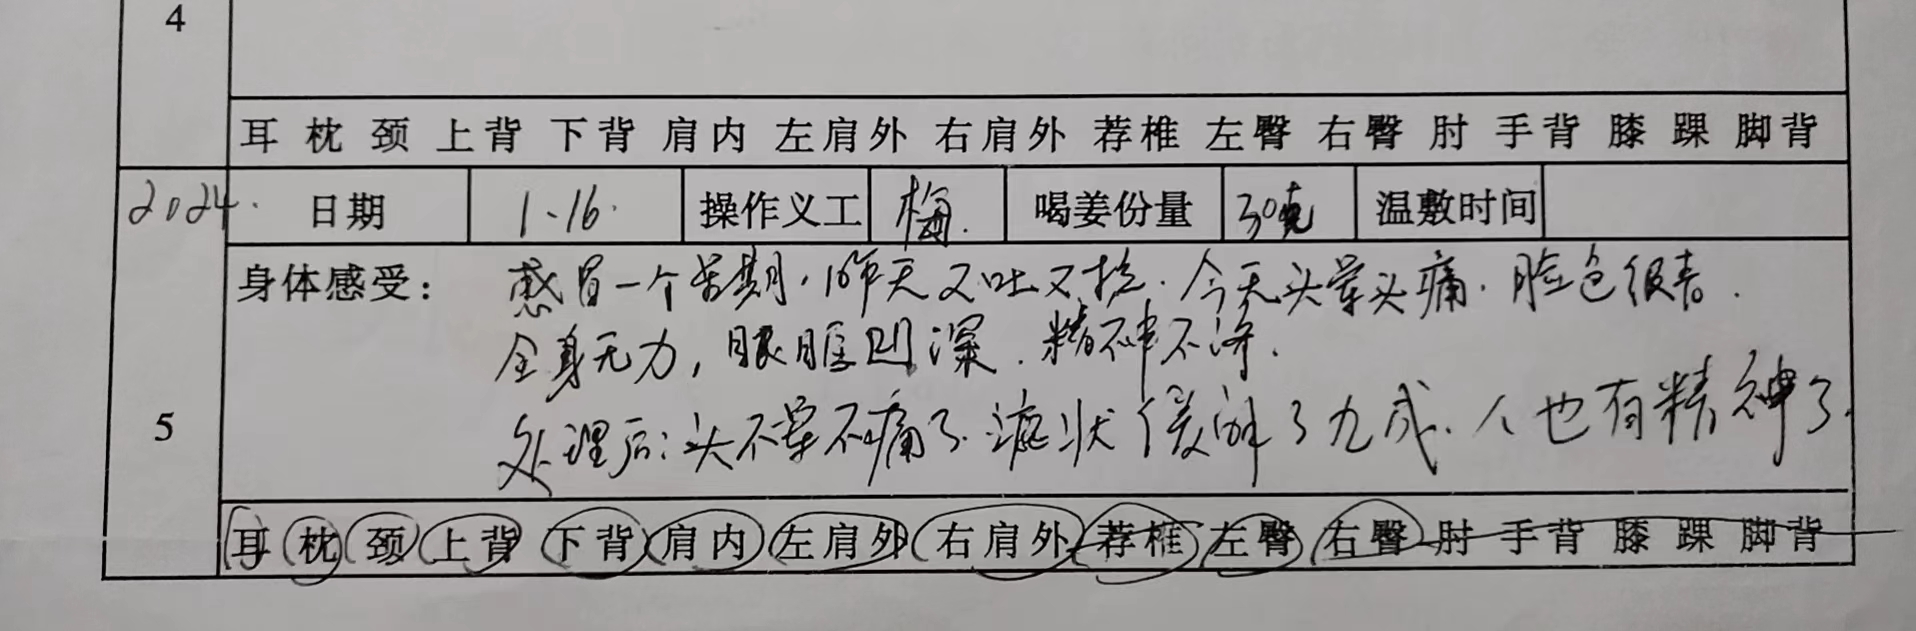 4
耳 枕 颈 上背 下背 肩内 左肩外 右肩外 荐椎 左臀 右臀 肘 手背 膝 踝 脚背
2024. 日期 1.16. 操作义工 梅. 喝姜份量 30克 温敷时间
身体感受: 感冒一个星期,昨天又吐又拉.今天头晕头痛.脸色很青.
全身无力,眼眶凹深.精神不济.
5
处理后:头不晕不痛了.症状缓解了九成.人也有精神了.
耳 枕 颈 上背 下背 肩内 左肩外 右肩外 荐椎 左臀 右臀 肘 手背 膝 踝 脚背